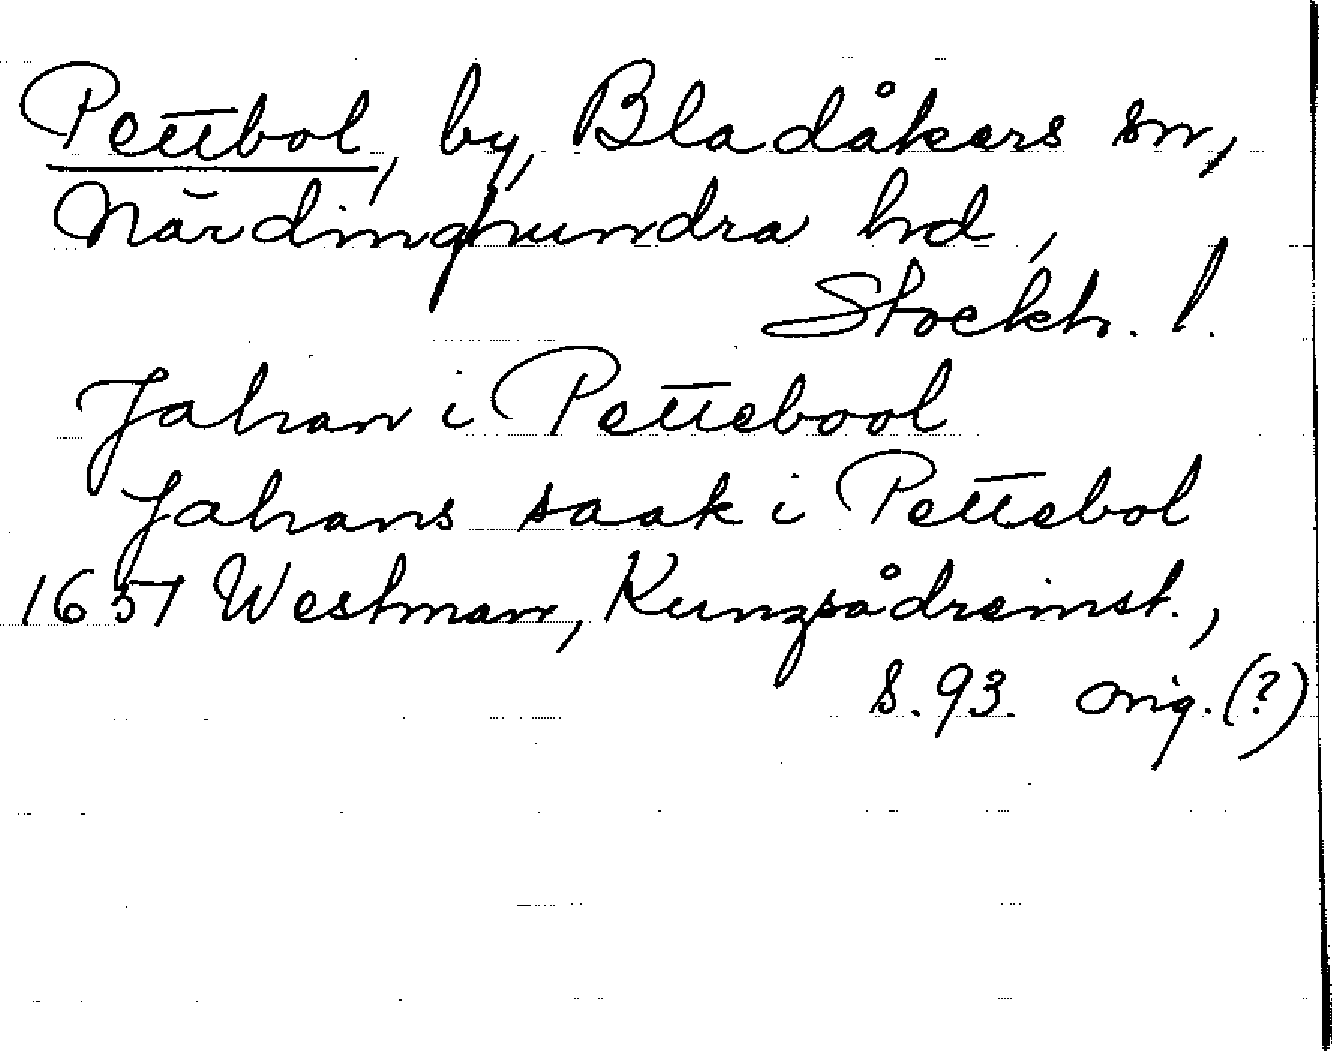 Pettbol, by, Bladåkers sn,
Närdinghundra hd,
Stockh. l.
Jahan i Pettebool
Jahans saak i Pettebol
1637 Westman, Kungsådreinst.,
s. 93. orig. (?)